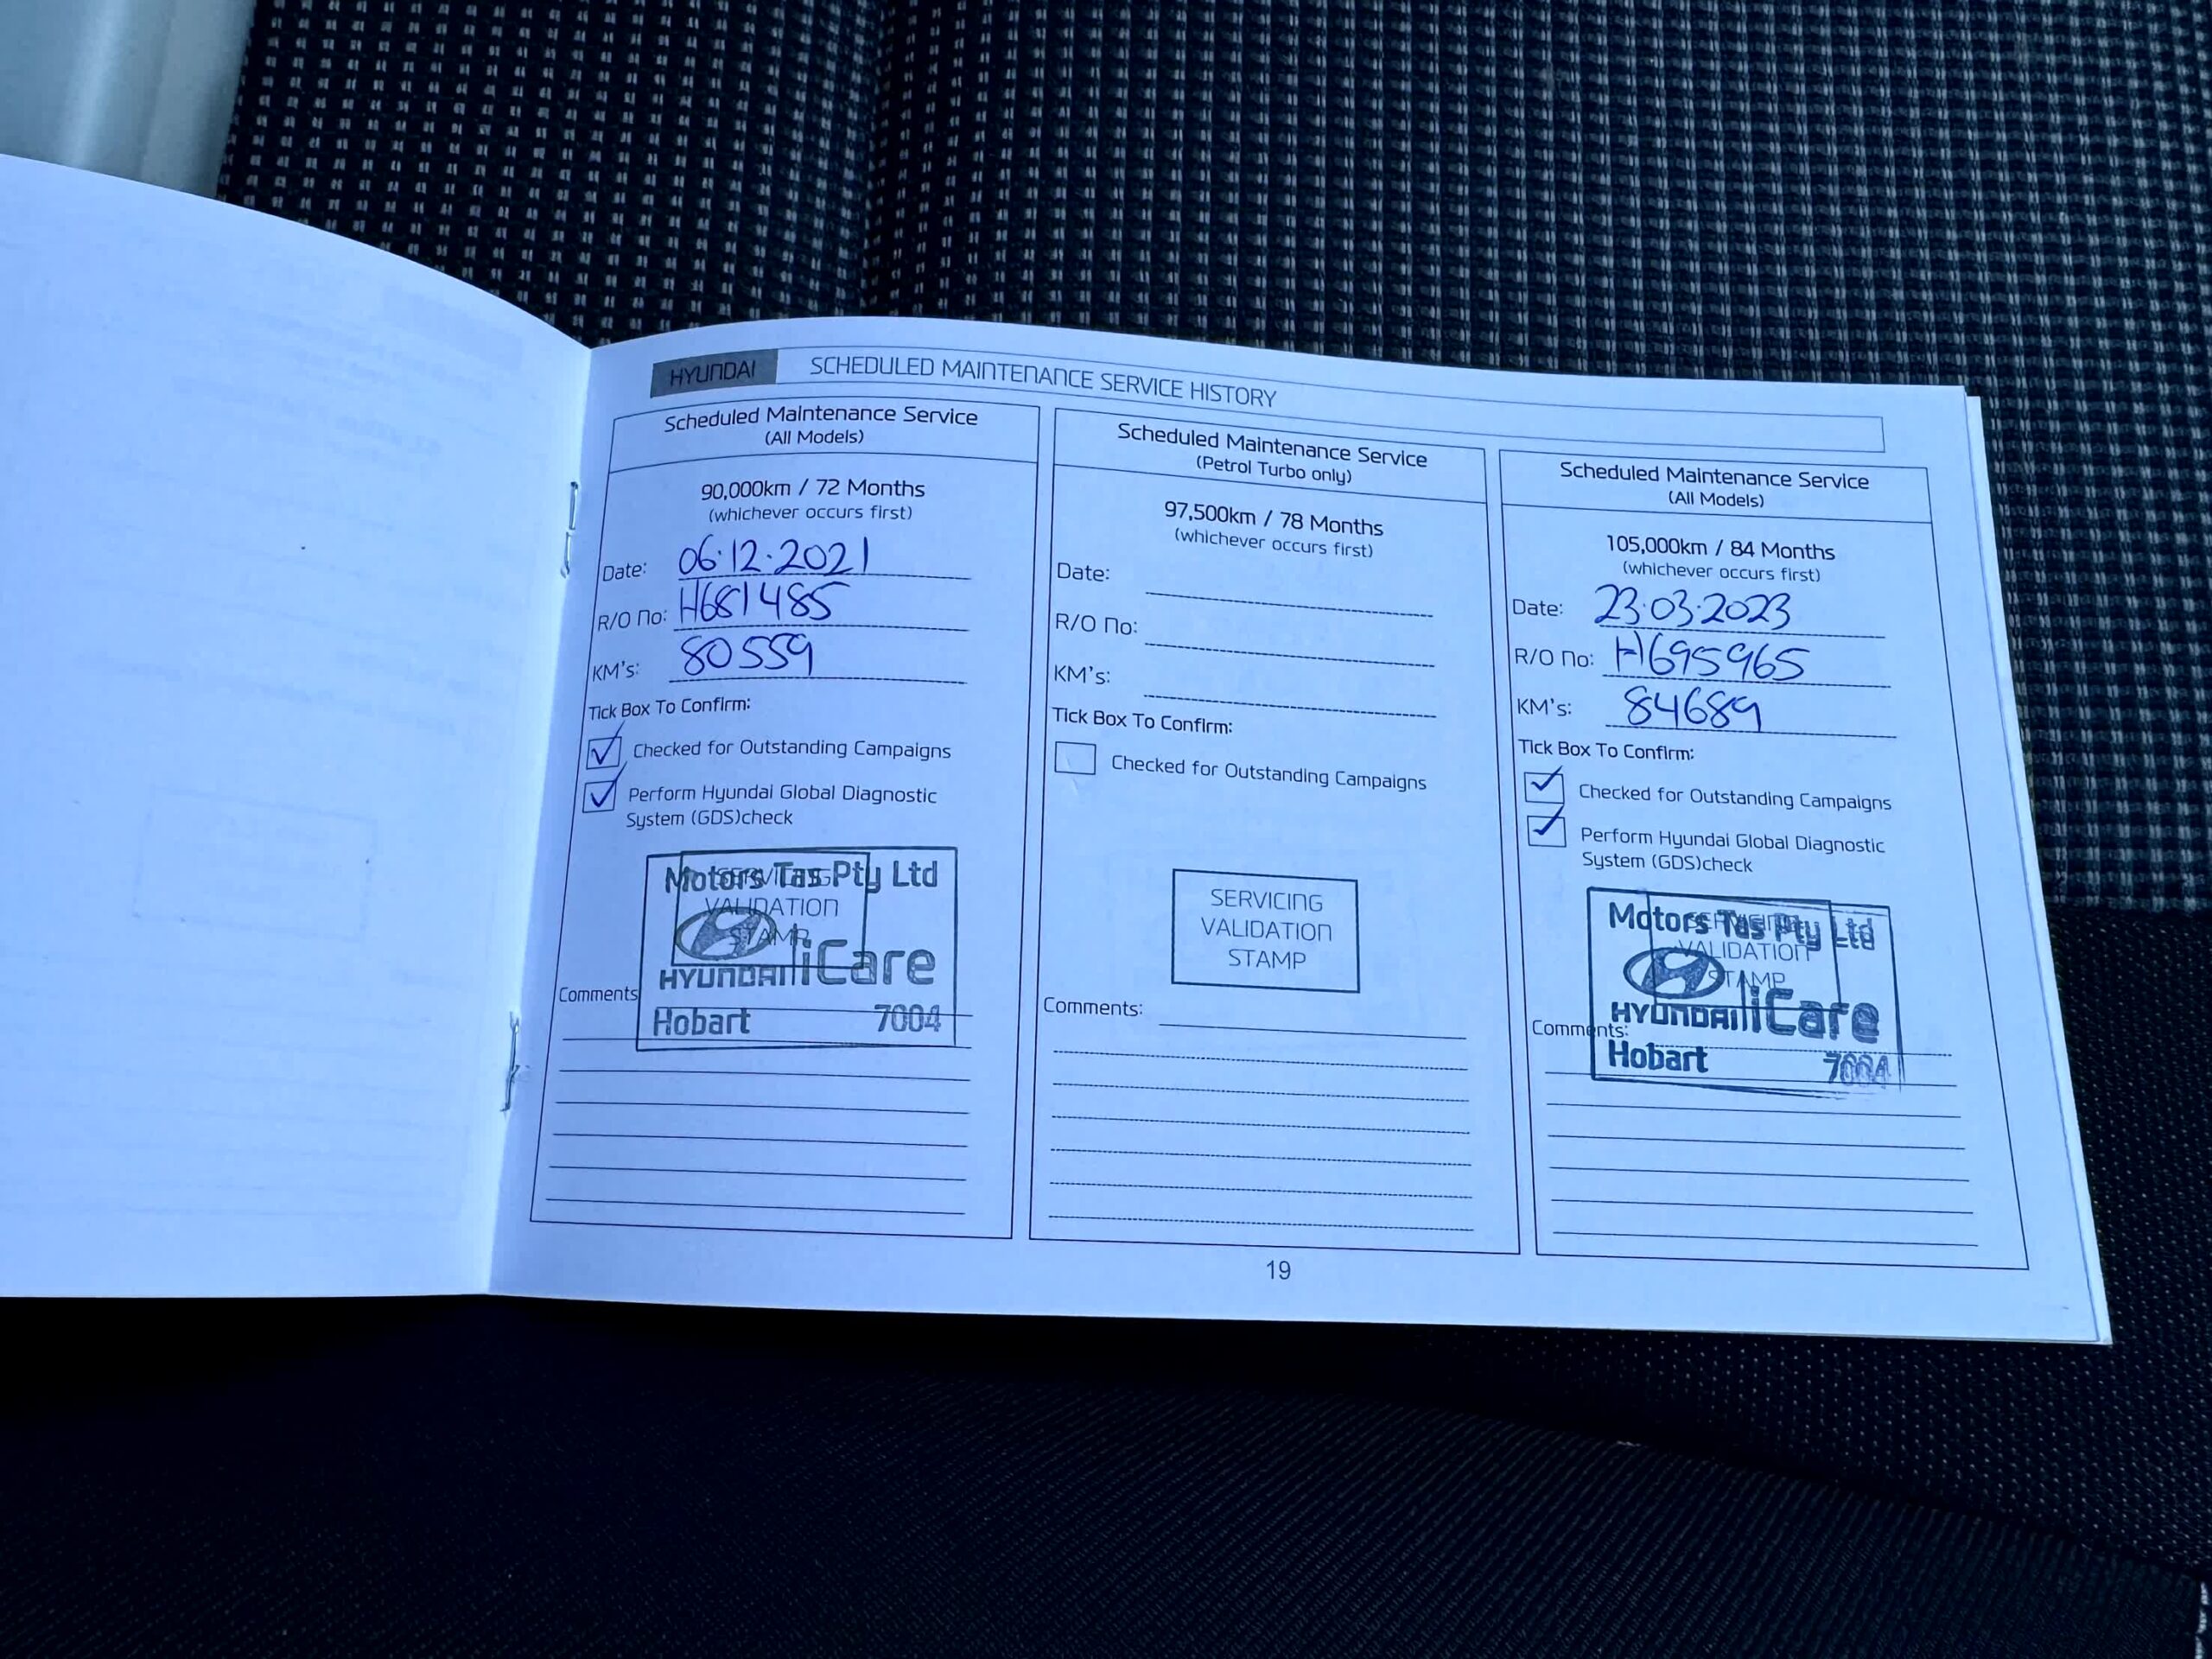 HYUNDAI SCHEDULED MAINTENANCE SERVICE HISTORY
Scheduled Maintenance Service
(All Models)
90,000km / 72 Months
(whichever occurs first)
Date: 06.12.2021
R/O No: H681485
KM's: 80559
Tick Box To Confirm:
Checked for Outstanding Campaigns
Perform Hyundai Global Diagnostic
System (GDS)check
SERVICING
VALIDATION
STAMP
Motors Tas Pty Ltd
HYUNDAI iCare
Hobart 7004
Comments
Scheduled Maintenance Service
(Petrol Turbo only)
97,500km / 78 Months
(whichever occurs first)
Date:
R/O No:
KM's:
Tick Box To Confirm:
Checked for Outstanding Campaigns
SERVICING
VALIDATION
STAMP
Comments:
Scheduled Maintenance Service
(All Models)
105,000km / 84 Months
(whichever occurs first)
Date: 23.03.2023
R/O No: H695965
KM's: 84689
Tick Box To Confirm:
Checked for Outstanding Campaigns
Perform Hyundai Global Diagnostic
System (GDS)check
SERVICING
VALIDATION
STAMP
Motors Tas Pty Ltd
HYUNDAI iCare
Hobart 7004
Comments:
19